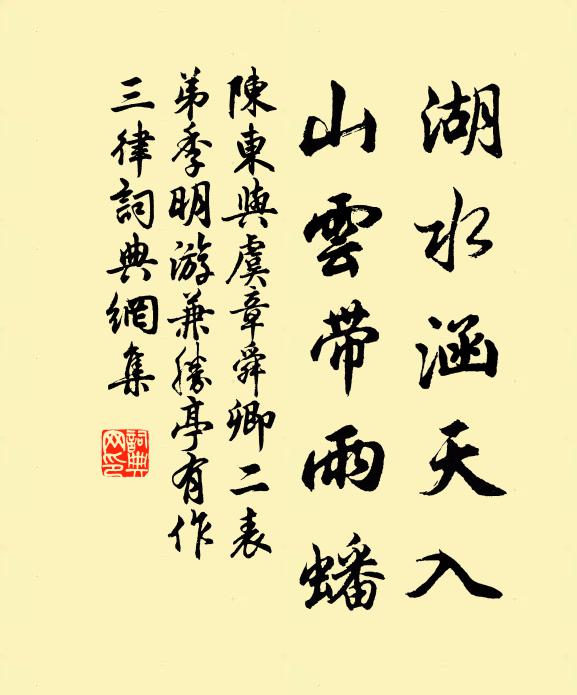 湖水涵天入
山雲帶雨蟠
陳東與虞章舜卿二表
弟季明游兼勝亭有作
三律詞典網集
詞典
网印